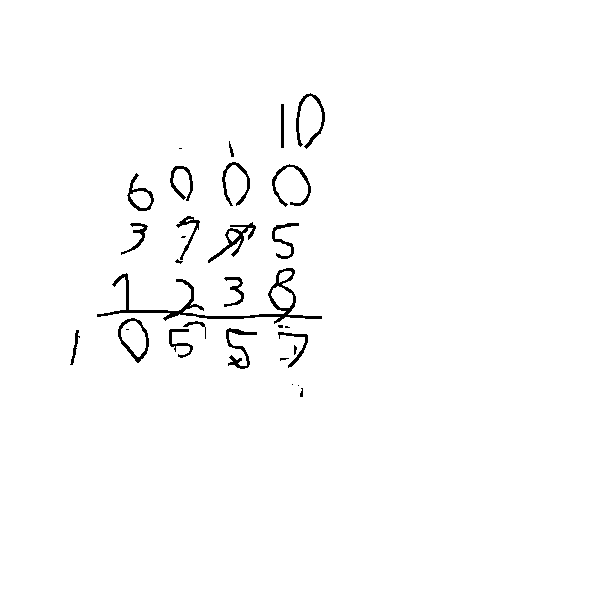 10
6000
3795
1238
10557